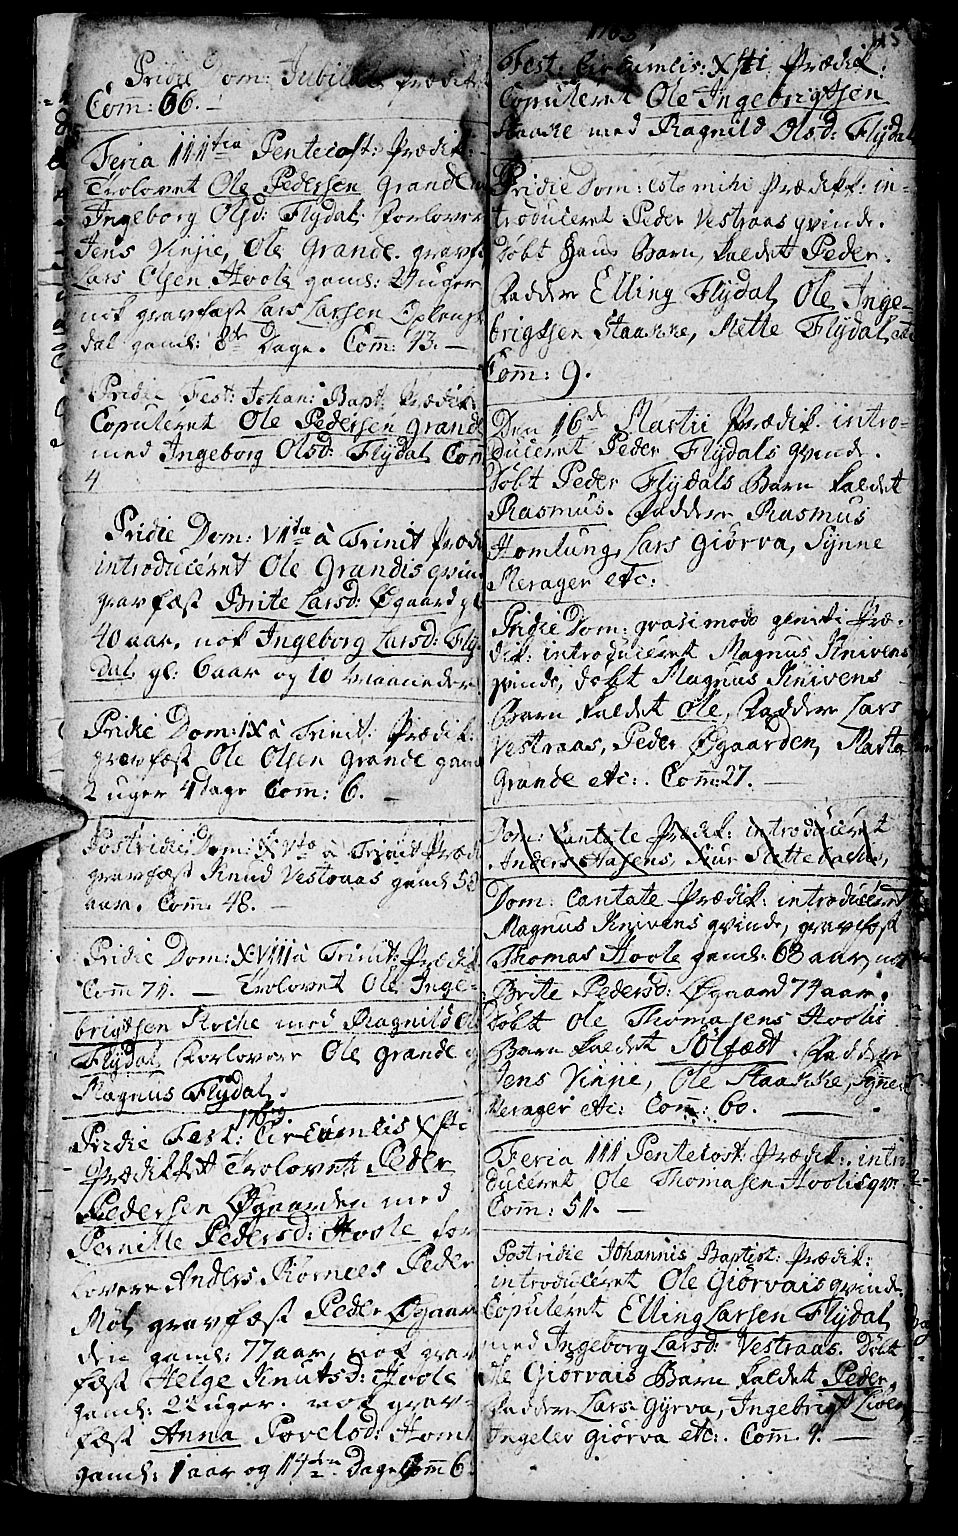 Pridie Dom: Jubilate Prædik:
Com: 66. —
Feria III tia Pentecost: Prædik:
Trolovet Ole Pedersen Grande
Ingeborg Olsd: Flydal: Forlover
Jens Vinjie, Ole Grande. gravf
Lars Olsen Hoole gaml: 2 uger
nok gravfæst Lars Larsen
dal gaml: 8te Dage. Com̄: 73. —
Pridie Fest: Johan: Bapt: Prædik:
Copuleret Ole Pedersen Grande
med Ingeborg Olsd: Flydal Com̄
4
Pridie Dom: VII ta à Trinit Præd
introduceret Ole Grandis qvin
gravfæst Brite Larsd: Øgaard gl
40 aar, nok Ingeborg Larsd: Fly-
dal gl: 6 aar og 10 maaneder
Pridie Dom: IX à Trinit: Prædik:
gravfæst Ole Olsen Grande gaml
2 uger 4 Dage Com̄: 6. —
Postridie Dom: XV to à Trinit Præd
gravfæst Knud Vestraas gaml 58
aar. Com̄: 48. —
Pridie Dom: XVIII à Trinit: Prædik
Com̄ 71. — Trolovet Ole Inge-
brigtsen Stoche med Ragnild Ols
Flydal, Forlovere Ole Grande
Magnus Flydal.
1763
Pridie Fest: Circumcis Xsti
Prædikket Trolovet Peder
Pedersen Øgaarden med
Pernille Pedersd: Hoole for
lovere Anders Kornees Peder
Møl, gravfæst Peder Øgaar
den gaml: 77 aar, nok grav
fæst Helge Knutsd: Hoole
gaml: 22 uger. nok grav-
fæst Anna Povelsd: Homl
gaml: 1 aar og 14den Dage Com̄ 6
1763
115
Fest: Circumcis: Xsti Prædik:
Copuleret Ole Ingebrigtsen
Staacke med Ragnild Olsd: Flydal
Pridie Dom: esto mihi Prædik: in-
troduceret Peder Vestraas qvinde.
Døbt Hans Barn, kaldet Peder.
Faddere Elling Flydal, Ole Inge-
brigtsen Staakke, Mette Flydal etc
Com̄: 9.
Den 16de Martii Prædik: intro-
duceret Peder Flydals qvinde.
Døbt Peder Flydals Barn kaldet
Rasmus. Faddere Rasmus
Homlung, Lars Giørva, Synne
Merager etc:
Pridie Dom: qvasimodo geniti Præ-
dik: introduceret Magnus Knivens
qvinde, døbt Magnus Knivens
Barn kaldet Ole, Faddere Lars
Vestraas, Peder Øgaarden, Marta
Grande etc: Com̄: 27. —
Dom: Cantate Prædik: introduceret
Anders Aasens, Siur Slettebackes,
Dom: Cantate Prædik: introduceret
Magnus Knivens qvinde, gravfæst
Thomas Hoole gaml: 68 aar, nok
Brite Pedersd: Øgaard 74 aar.
Døbt Ole Thomasens Hoolis
Barn kaldet Sølfæst. Faddere
Jens Vinjie, Ole Staakke, Synne
Merager etc: Com̄: 60. —
Feria III Pentecost: Prædik: intro
duceret Ole Thomasen Hoolis qv:
Com̄: 51. —
Postridie Johannis Baptist: Prædik:
introduceret Ole Giörvais qvinde.
Copuleret Elling Larsen Flydal
med Ingeborg Larsd: Vestraas. Døbt
Ole Giörvais Barn kaldet Peder.
Faddere Lars Gyrva, Ingebrigt
Ingelev Giörva etc: Com̄: 4. —